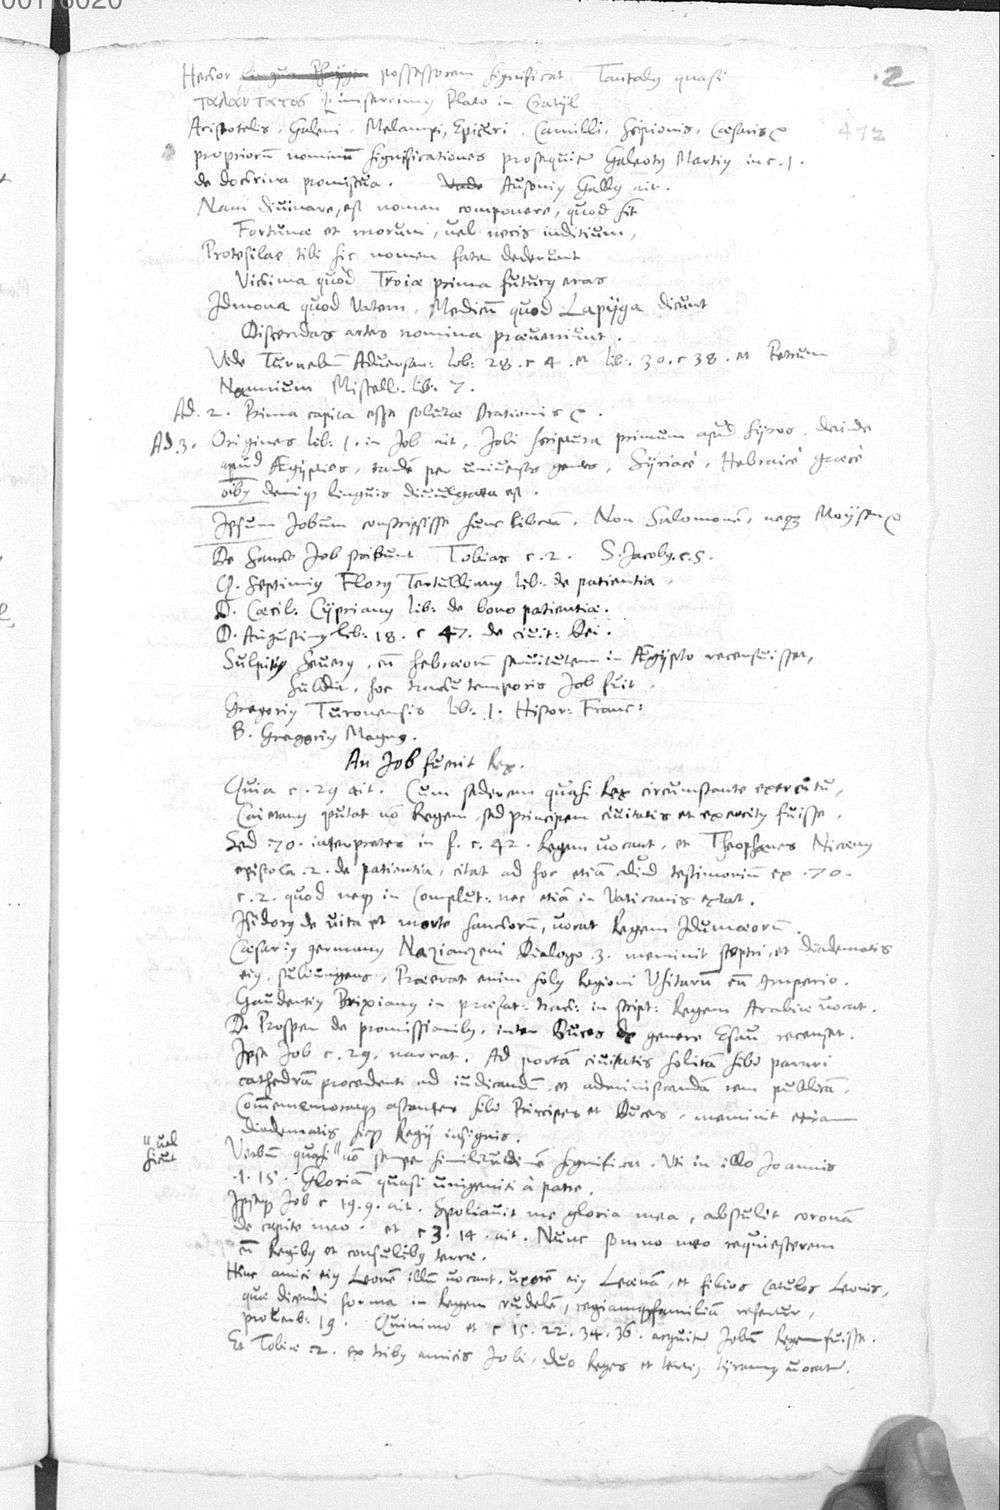 00116020
.2
Hector lingua Phrygia possessorem significat. Tantalus quasi
ταλάντατος .i. miserrimus Plato in Cratyl
472
Aristotelis, Galeni, Melampi, Epicuri, Camilli, Scipionis, Cæsaris
propriorū nominū significationes prosequit Galeotus Martius in c. 1.
de doctrina promiscua. Ausonius Gallus ait.
Nam diuinare, est nomen componere, quod sit
Fortunæ et morum, uel necis inditium,
Protesilae tibi sic nomen fata dederunt
Victima quod Troiæ prima futurus eras
Idmona quod Vatem, Medicū quod Iapyga dicunt
Discendas artes nomina præueniunt.
Vide Turnebū Aduersar: lib: 28. c 4. et lib. 30. c 38. et Petrum
Nannium Miscell. lib. 7.
Ad. 2. Prima capita esse solutæ Orationis
Ad. 3. Origines lib: 1. in Job ait, Jobi scriptura primum apud Syros. deinde
apud Ægyptios, tandē per uniuersas gentes, Syriacè, Hebraicè græcè
oībus deniq linguis diuulgata est.
Ipsum Jobum conscripsisse hunc librum. Non Salomonē, neq Moysen
De Sancto Job scribunt Tobias c. 2. S. Jacobus. c. 5.
Q. Septimius Florus Tertullianus lib: de patientia.
D. Cæcil: Cyprianus lib: de bono patientiæ.
D. Augustinus lib: 18. c 47. de ciuit: Dei.
Sulpitius Seuerus, cū hebræorū seruitutem in Ægypto recensuisset,
subdit, hoc tractu temporis Job fuit.
Gregorius Turonensis lib: 1. Histor: Franc:
B. Gregorius Magnus.
An Job fuerit Rex.
Quia c. 29 ait. Cum sederem quasi Rex circumstante exercitu,
Caietanus putat nō Regem, sed principem ciuitatis et exercitus fuisse.
Sed .70. interpretes in f. c. 42. Regem uocant, et Theophanes Nicænus
epistola .2. de patientia, citat ad hoc etiā aliud testimoniū ex .70.
c. 2. quod neq in Complut: nec etiā in Vaticanis extat.
Isidorus de uita et morte sanctorū, uocat Regem Idumæorū.
Cæsarius germanus Nazianzeni Dialogo .3. meminit sceptri et diadematis
eius, subiungens, Præerat enim solus Regioni Usitarū cū Imperio.
Gaudentius Brixianus in præfat: tract: in script: Regem Arabiæ uocat.
D. Prosper de promissionibus, inter Duces de genere Esau recenset.
Ipse Job c. 29. narrat. Ad portā ciuitatis solitā sibi parari
cathedrā procedenti ad iudicandū, et administrandā rem publicā.
Commemoratq astantes sibi Principes et Duces, meminit etiam
diadematis sicq Regii insignis.
" uel
sicut
Verbū quasi " nō semper similitudinē significat. Uti in illo Joannis
.1. 15. Gloriam quasi unigeniti à patre.
Ipseq Job c 19. 9. ait. Spoliauit me gloria mea, abstulit coronā
de capite meo. et c 3. 14. ait. Nunc somno meo requiescerem
cū Regibus et consulibus terræ.
Hinc amici eius Leonē illū uocant, uxorē eius Leænā, et filios Catulos Leonis,
quæ dicendi forma in Regem crudelē, regiamq familiā refertur,
prouerb: 19. Quinimo et c 15. 22. 34. 36. arguit Jobū Regem fuisse.
Et Tobiæ c 2. ex tribus amicis Jobi, duo Reges et tertius tyrannus uocatur.